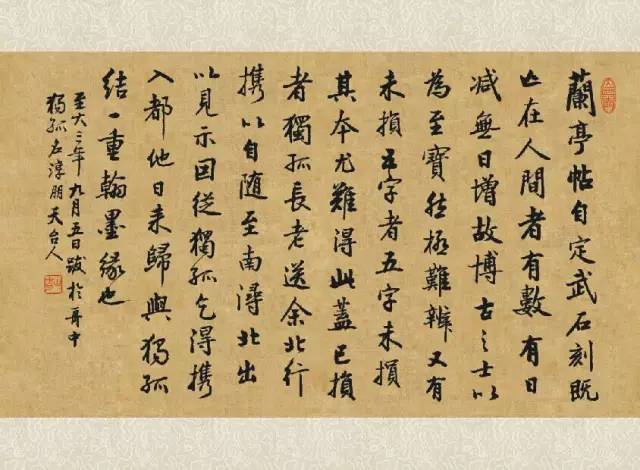 蘭亭帖自定武石刻既
亡在人間者有數有日
减無日增故博古之士以
為至寶然極難辨又有
未損五字者五字未損
其本尤難得此蓋已損
者獨孤長老送余北行
携以自随至南潯北出
以見示因從獨孤乞得携
入都他日来歸與獨孤
結一重翰墨縁也
至大三年九月五日跋於舟中
獨孤名淳朋天台人